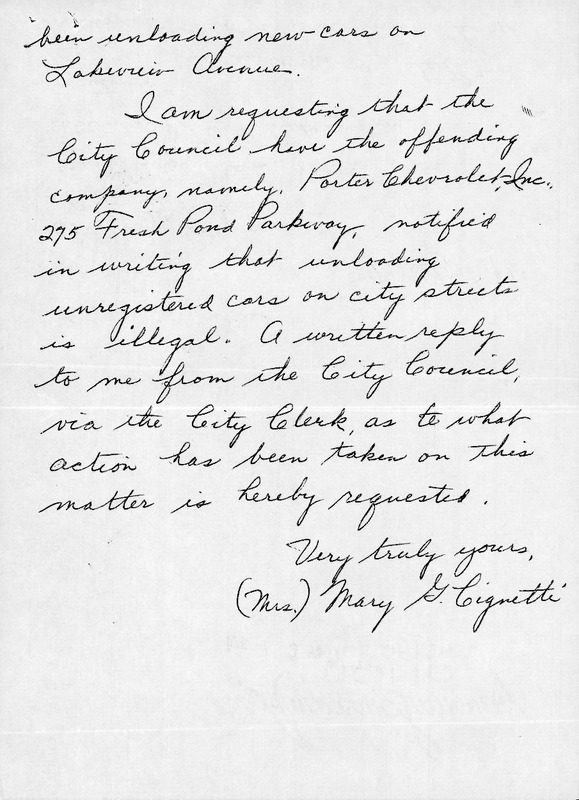 been unloading new cars on
Lakeview Avenue.
I am requesting that the
City Council have the offending
company, namely, Porter Chevrolet, Inc.,
275 Fresh Pond Parkway, notified
in writing that unloading
unregistered cars on city streets
is illegal. A written reply
to me from the City Council,
via the City Clerk, as to what
action has been taken on this
matter is hereby requested.
Very truly yours,
(Mrs.) Mary G. Cignetti